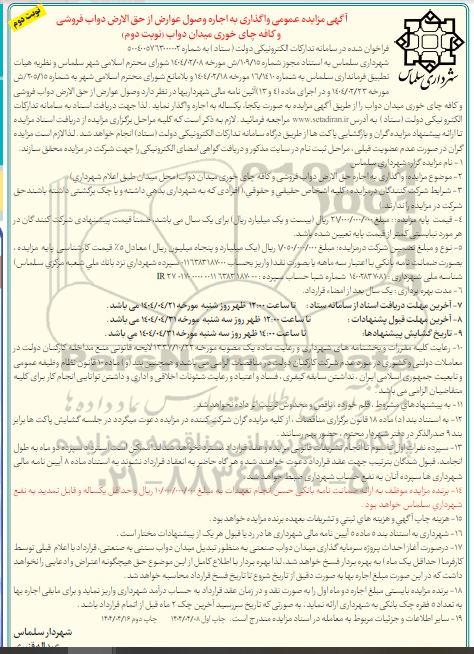 نوبت دوم
آگهی مزایده عمومی واگذاری به اجاره وصول عوارض از حق الارض دواب فروشی
و کافه چای خوری میدان دواب (نوبت دوم)
شهرداری سلماس
فراخوان شده در سامانه تدارکات الکترونیکی دولت ( ستاد ) به شماره
شهرداری سلماس به استناد مجوز شماره ۱۰۹/۱۵/ش مورخه ۱۴۰۴/۲/۰۸ شورای محترم اسلامی شهر سلماس و نظریه هیات
تطبیق فرمانداری سلماس به شماره ۱۶/۱۴۱۰ مورخه ۱۴۰۴/۲/۱۸ و بلامانع شورای اسلامی شهر به شماره
مورخه ۱۴۰۴/۲/۲۳ و در اجرای ماده (۴ و ۱۳) آئین نامه مالی شهرداریها در نظر دارد وصول عوارض از حق الارض دواب فروشی
و کافه چای خوری میدان دواب را از طریق آگهی مزایده به صورت یکجا، یکساله به اجاره واگذار نماید. لذا جهت دریافت اسناد به سامانه تدارکات
الکترونیکی دولت (ستاد) به آدرس www.setadiran.ir مراجعه فرمائید. لازم به ذکر است که کلیه مراحل برگزاری مزایده از دریافت اسناد مزایده
تا ارائه پیشنهاد مزایده گران و بازگشایی پاکت ها از طریق درگاه سامانه تدارکات الکترونیکی دولت (ستاد) انجام خواهد شد. لذا لازم است مزایده
گران در صورت عدم عضویت قبلی، مراحل ثبت نام در سایت مذکور و دریافت گواهی امضای الکترونیکی را جهت شرکت در مزایده محقق سازند.
۱- نام مزایده گزار: شهرداری سلماس
۲- موضوع مزایده: واگذاری به اجاره حق الارض دواب فروشی و کافه چای خوری میدان دواب (محل میدان طبق اعلام شهرداری)
۳- شرایط شرکت کنندگان در مزایده: کلیه اشخاص حقیقی و حقوقی، (افرادی که به شهرداری بدهی داشته و یا چک برگشتی داشته باشند حق
شرکت در مزایده را ندارند.)
۴- قیمت پایه مزایده: مبلغ ۲۱/۰۰۰/۰۰۰/۰۰۰ ریال (بیست و یک میلیارد ریال) برای یک سال می باشد. ضمناً قیمت پیشنهادی شرکت کنندگان در
هر مورد نبایستی کمتر از قیمت پایه تعیین شده باشد.
۵- نوع و مبلغ تضمین شرکت در مزایده: مبلغ ۱/۰۵۰/۰۰۰/۰۰۰ ریال (یک میلیارد و پنجاه میلیون ریال) معادل ۵٪ قیمت کارشناسی پایه مزایده،
بصورت ضمانت نامه بانکی با اعتبار سه ماهه یا بصورت نقد (واریز بحساب سپرده شهرداری نزد بانک ملی شعبه مرکزی سلماس)
شناسه ملی شهرداری : شماره شبا حساب سپرده :
۶- مدت بهره برداری : یک سال بعد از امضاء قرارداد.
۷- آخرین مهلت دریافت اسناد از سامانه ستاد: تا ساعت ۱۲:۰۰ ظهر روز شنبه مورخه ۱۴۰۴/۰۴/۲۱ می باشد.
۸- آخرین مهلت قبول پیشنهادات : تا ساعت ۱۲:۰۰ ظهر روز سه شنبه مورخه ۱۴۰۴/۰۴/۳۱ می باشد.
۹- تاریخ گشایش پیشنهادها: تا ساعت ۱۴:۰۰ ظهر روز سه شنبه مورخه ۱۴۰۴/۰۴/۳۱ می باشد.
۱۰- رعایت کلیه مقررات و بخشنامه های شهرداری و رعایت ماده یک مصوبه مورخه ۱۳۳۷/۱۰/۲۲ لایحه قانونی منع مداخله کارکنان دولت در
معاملات دولتی و کشوری در مورد عدم شرکت کارکنان دولت در مناقصات الزامی می باشد
و تابعیت جمهوری اسلامی ایران، نداشتن سابقه کیفری، فساد و اعتیاد و رعایت شئونات اخلاقی و اداری و داشتن توانایی انجام کار برای کلیه
متقاضیان الزامی می باشد.
۱۱- به پیشنهادهای مشروط، قلم خورده، ناقص و مخدوش ترتیب اثر داده نخواهد شد.
۱۲- به استناد بند (د) ماده ۱۸ قانون برگزاری مناقصات، از کلیه مزایده گران شرکت کننده در مزایده دعوت میگردد در جلسه گشایش پاکت ها برابر
بند ۹ صدرالذکر در دفتر شهردار محترم حضور بهم رسانند.
۱۴- برنده مزایده موظف به ارائه ضمانت نامه بانکی حسن انجام تعهدات به مبلغ ریال و حداقل یکساله و قابل تمدید به نفع
شهرداری سلماس خواهد بود.
۱۵- هزینه چاپ آگهی و هزینه های ثبتی و تشریفات بعهده برنده مزایده خواهد بود.
۱۶- شهرداری به استناد بند ۵ ماده ۵ آیین نامه مالی شهرداری ها در رد یا قبول هر یک از پیشنهادات مختار است.
۱۷- در صورت آغاز احداث پروژه سرمایه گذاری میدان دواب صنعتی به منظور تبدیل میدان دواب سنتی به صنعتی، قرارداد با اعلام قبلی توسط
کارفرما (حداقل یک ماه) به بهره بردار فسخ خواهد شد. لذا بهره بردار با اطلاع کامل از این موضوع حق هیچگونه اعتراض و ادعایی را نخواهد
داشت که در این صورت مبلغ اجاره بها به صورت دقیق از تاریخ شروع تا تاریخ فسخ قرارداد محاسبه خواهد شد.
۱۸- برنده مزایده بایستی مبلغ اجاره دو ماه اول را به صورت نقد و در زمان عقد قرارداد به حساب درآمد شهرداری واریز نماید و برای مابقی اجاره بها
به تعداد ۵ فقره چک بانکی به شهرداری ارائه نماید، به صورتی که تاریخ سررسید آخرین چک ۲ ماه قبل از اتمام قرارداد باشد.
۱۹- سایر اطلاعات و جزئیات مربوط به معامله در اسناد مزایده مندرج است. چاپ اول ۱۴۰۴/۰۴/۰۸ چاپ دوم ۱۴۰۴/۰۴/۱۶
شهردار سلماس